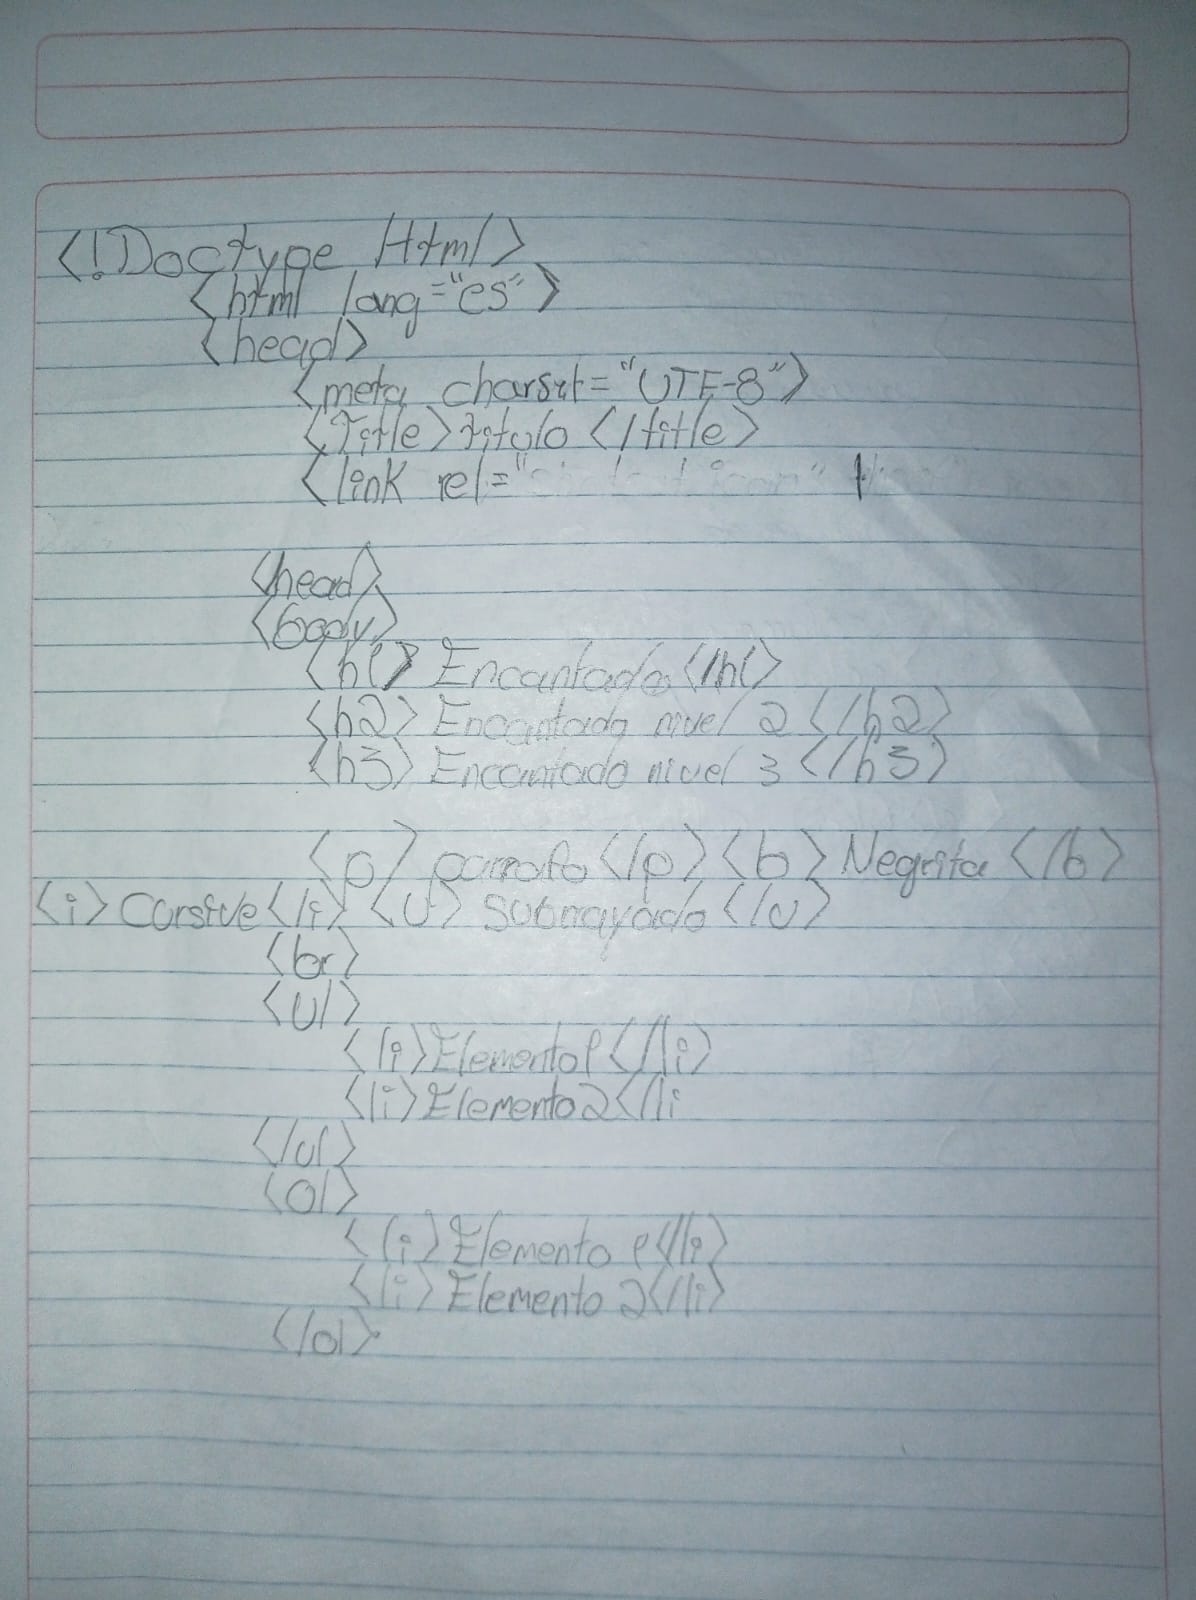 <!Doctype Html>
<html lang="es">
<head>
<meta charset="UTF-8">
<Title>titulo </title>
<link rel="
<head>
<body>
<h1> Encantado </h1>
<h2> Encantado nivel 2 </h2>
<h3> Encantado nivel 3 </h3>
<p> parrafo </p> <b> Negrita </b>
<i> Cursive </i> <u> Subrayado </u>
<br>
<ul>
<li>Elemento1</li>
<li>Elemento2</li
</ul>
<ol>
<li> Elemento 1</li>
<li> Elemento 2</li>
</ol>